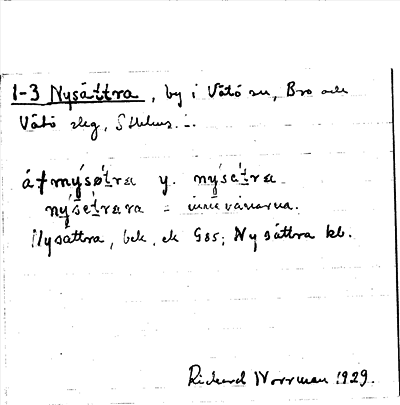 1-3 Nysättra, by i Vätö sn, Bro och
Vätö slg, Sthlms.
åt mýsøtra y. nýsetra
nýsetrara = innevånarna.
Nysättra, bek, ek G85; Nysättra kb.
Rickard Worrman 1929.